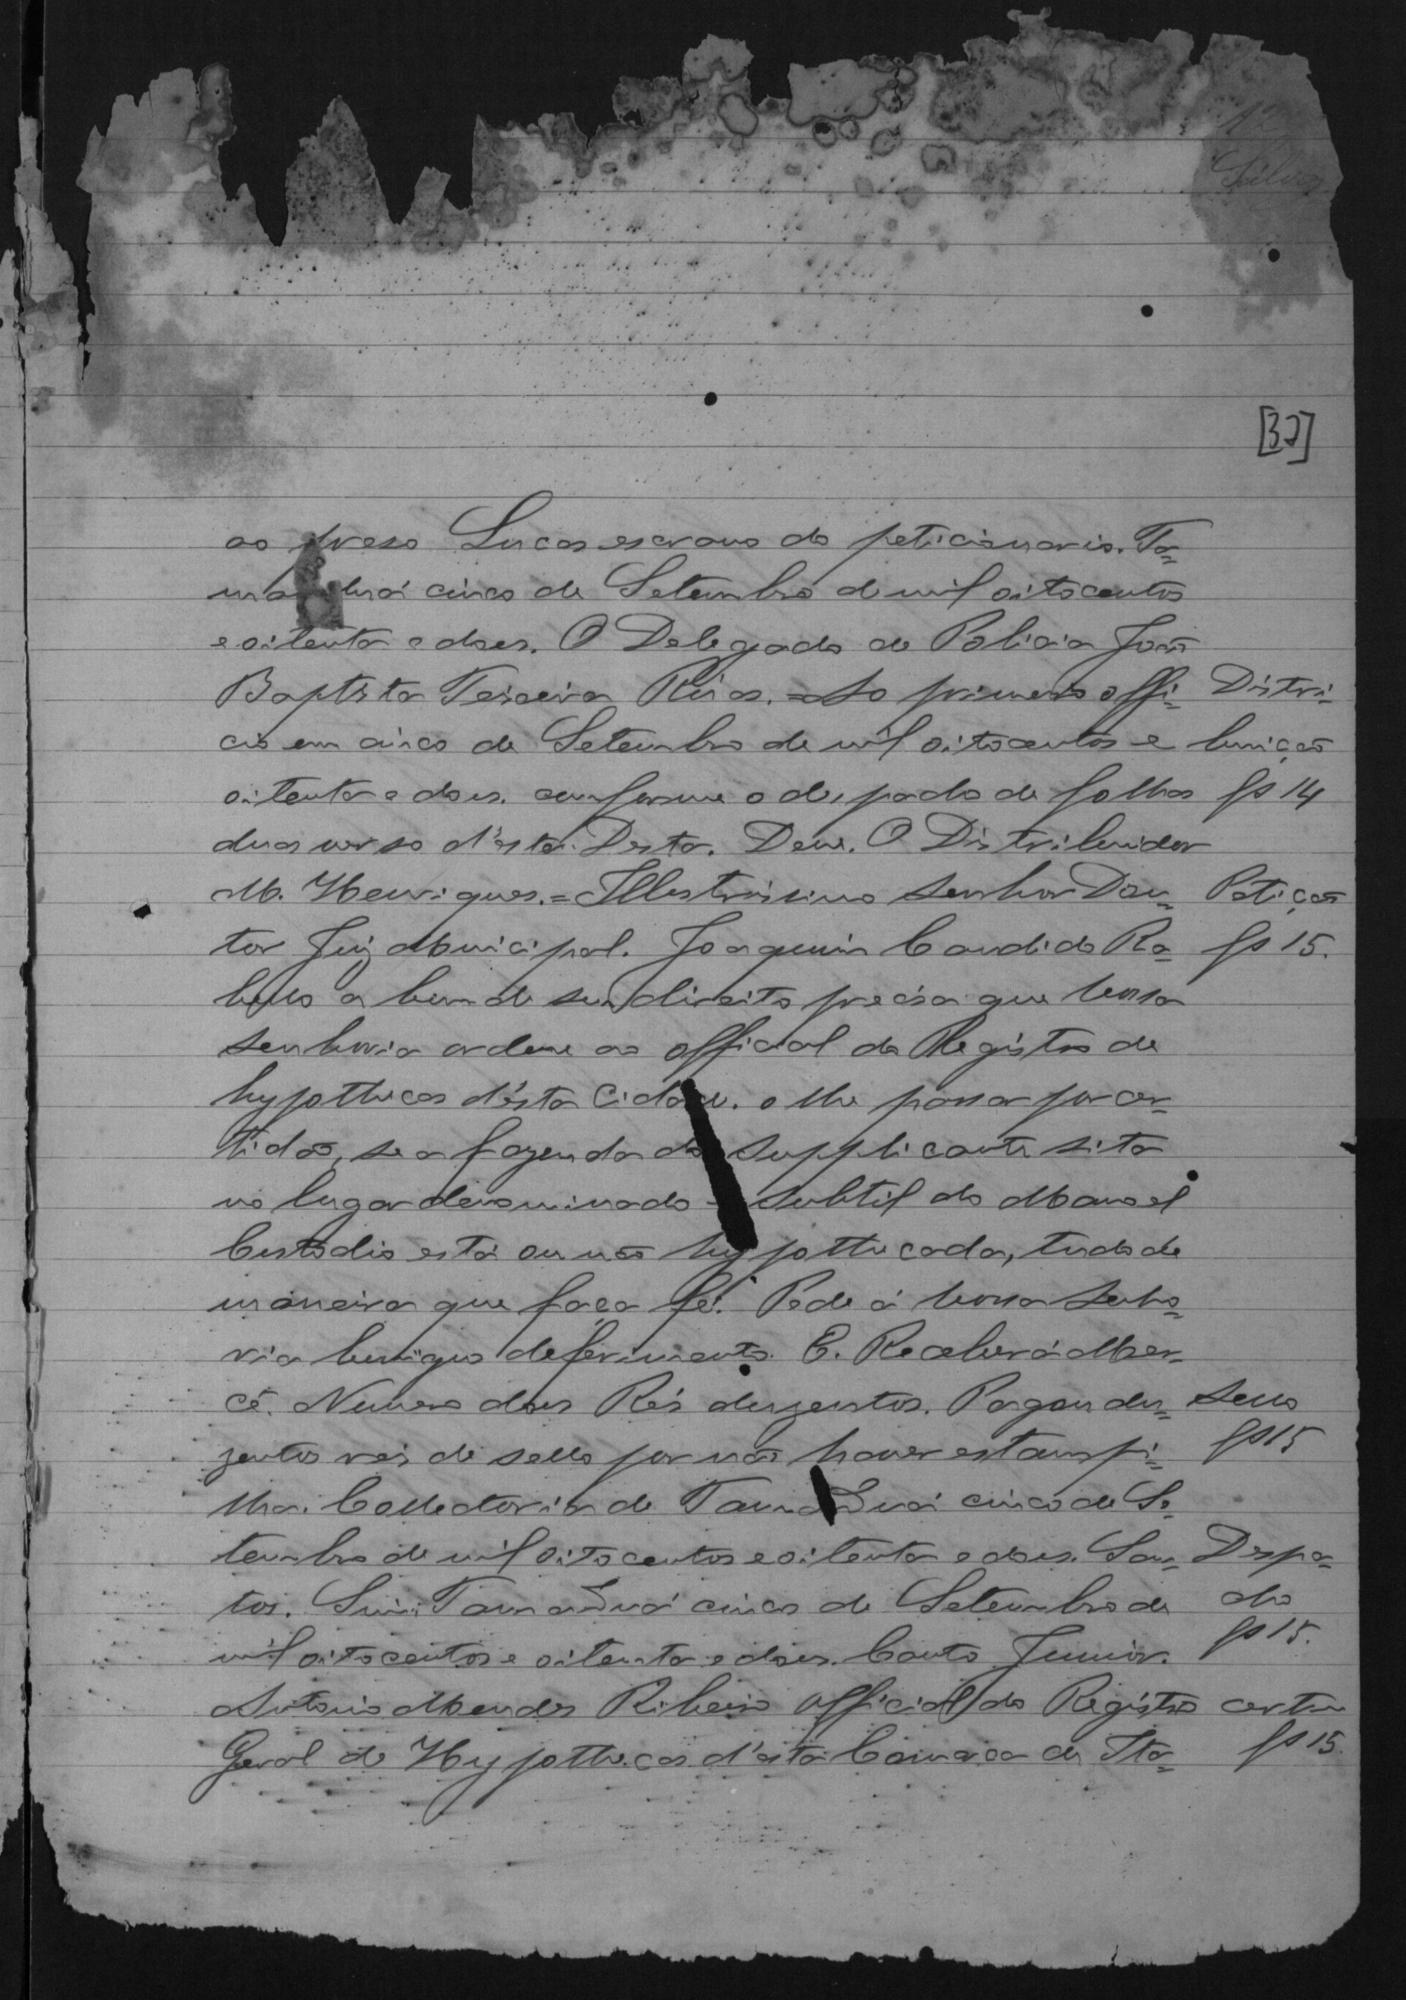 12
Silva
[32]
ao preso Lucas escravo do peticionario. Ta=
manduá cinco de Setembro de mil oitocentos
e oitenta e dois. O Delegado de Policia João
Baptista Teixeira Ruas. = Ao primeiro offi= Distri=
cio em cinco de Setembro de mil oitocentos e buição
oitenta e dois. conforme o despado de folhas fs 14
duas verso d'ésta. Desta. Deve. O Distribuidor
M. Henriques. = Illustrissimo Senhor Dou= Petição
tor Juiz Municipal. Joaquim Candido Ra= fs 15.
bello a bem de seu direito precisa que Vossa
Senhoria ordene ao official do Registro de
hypothecas d'ésta Cidade. o lhe passar por cer=
tidão, se a fazenda do supplicante sita
no lugar denominado = Subtil do Manoel
Custodio está ou não hypothecada, tudo de
maneira que faça fé. Pede á Vossa Senho=
ria benigno deferimento. E. Receberá Mer=
cê. Numero dois Rés duzentos. Pagou du= Sello
zentos reis de sello por não haver estampi= fs 15
lha. Collectoria de Tamanduá cinco de Se=
tembro de mil oito centos e oitenta e dois. San= Despa=
tos. Sim. Tamanduá cinco de Setembro de do
mil oitocentos e oitenta e dois. Couto Junior. fs 15.
Antonio Mendes Ribeiro official do Registro certm
Geral de Hypothecas d'ésta Comarca de Ita= fs 15.